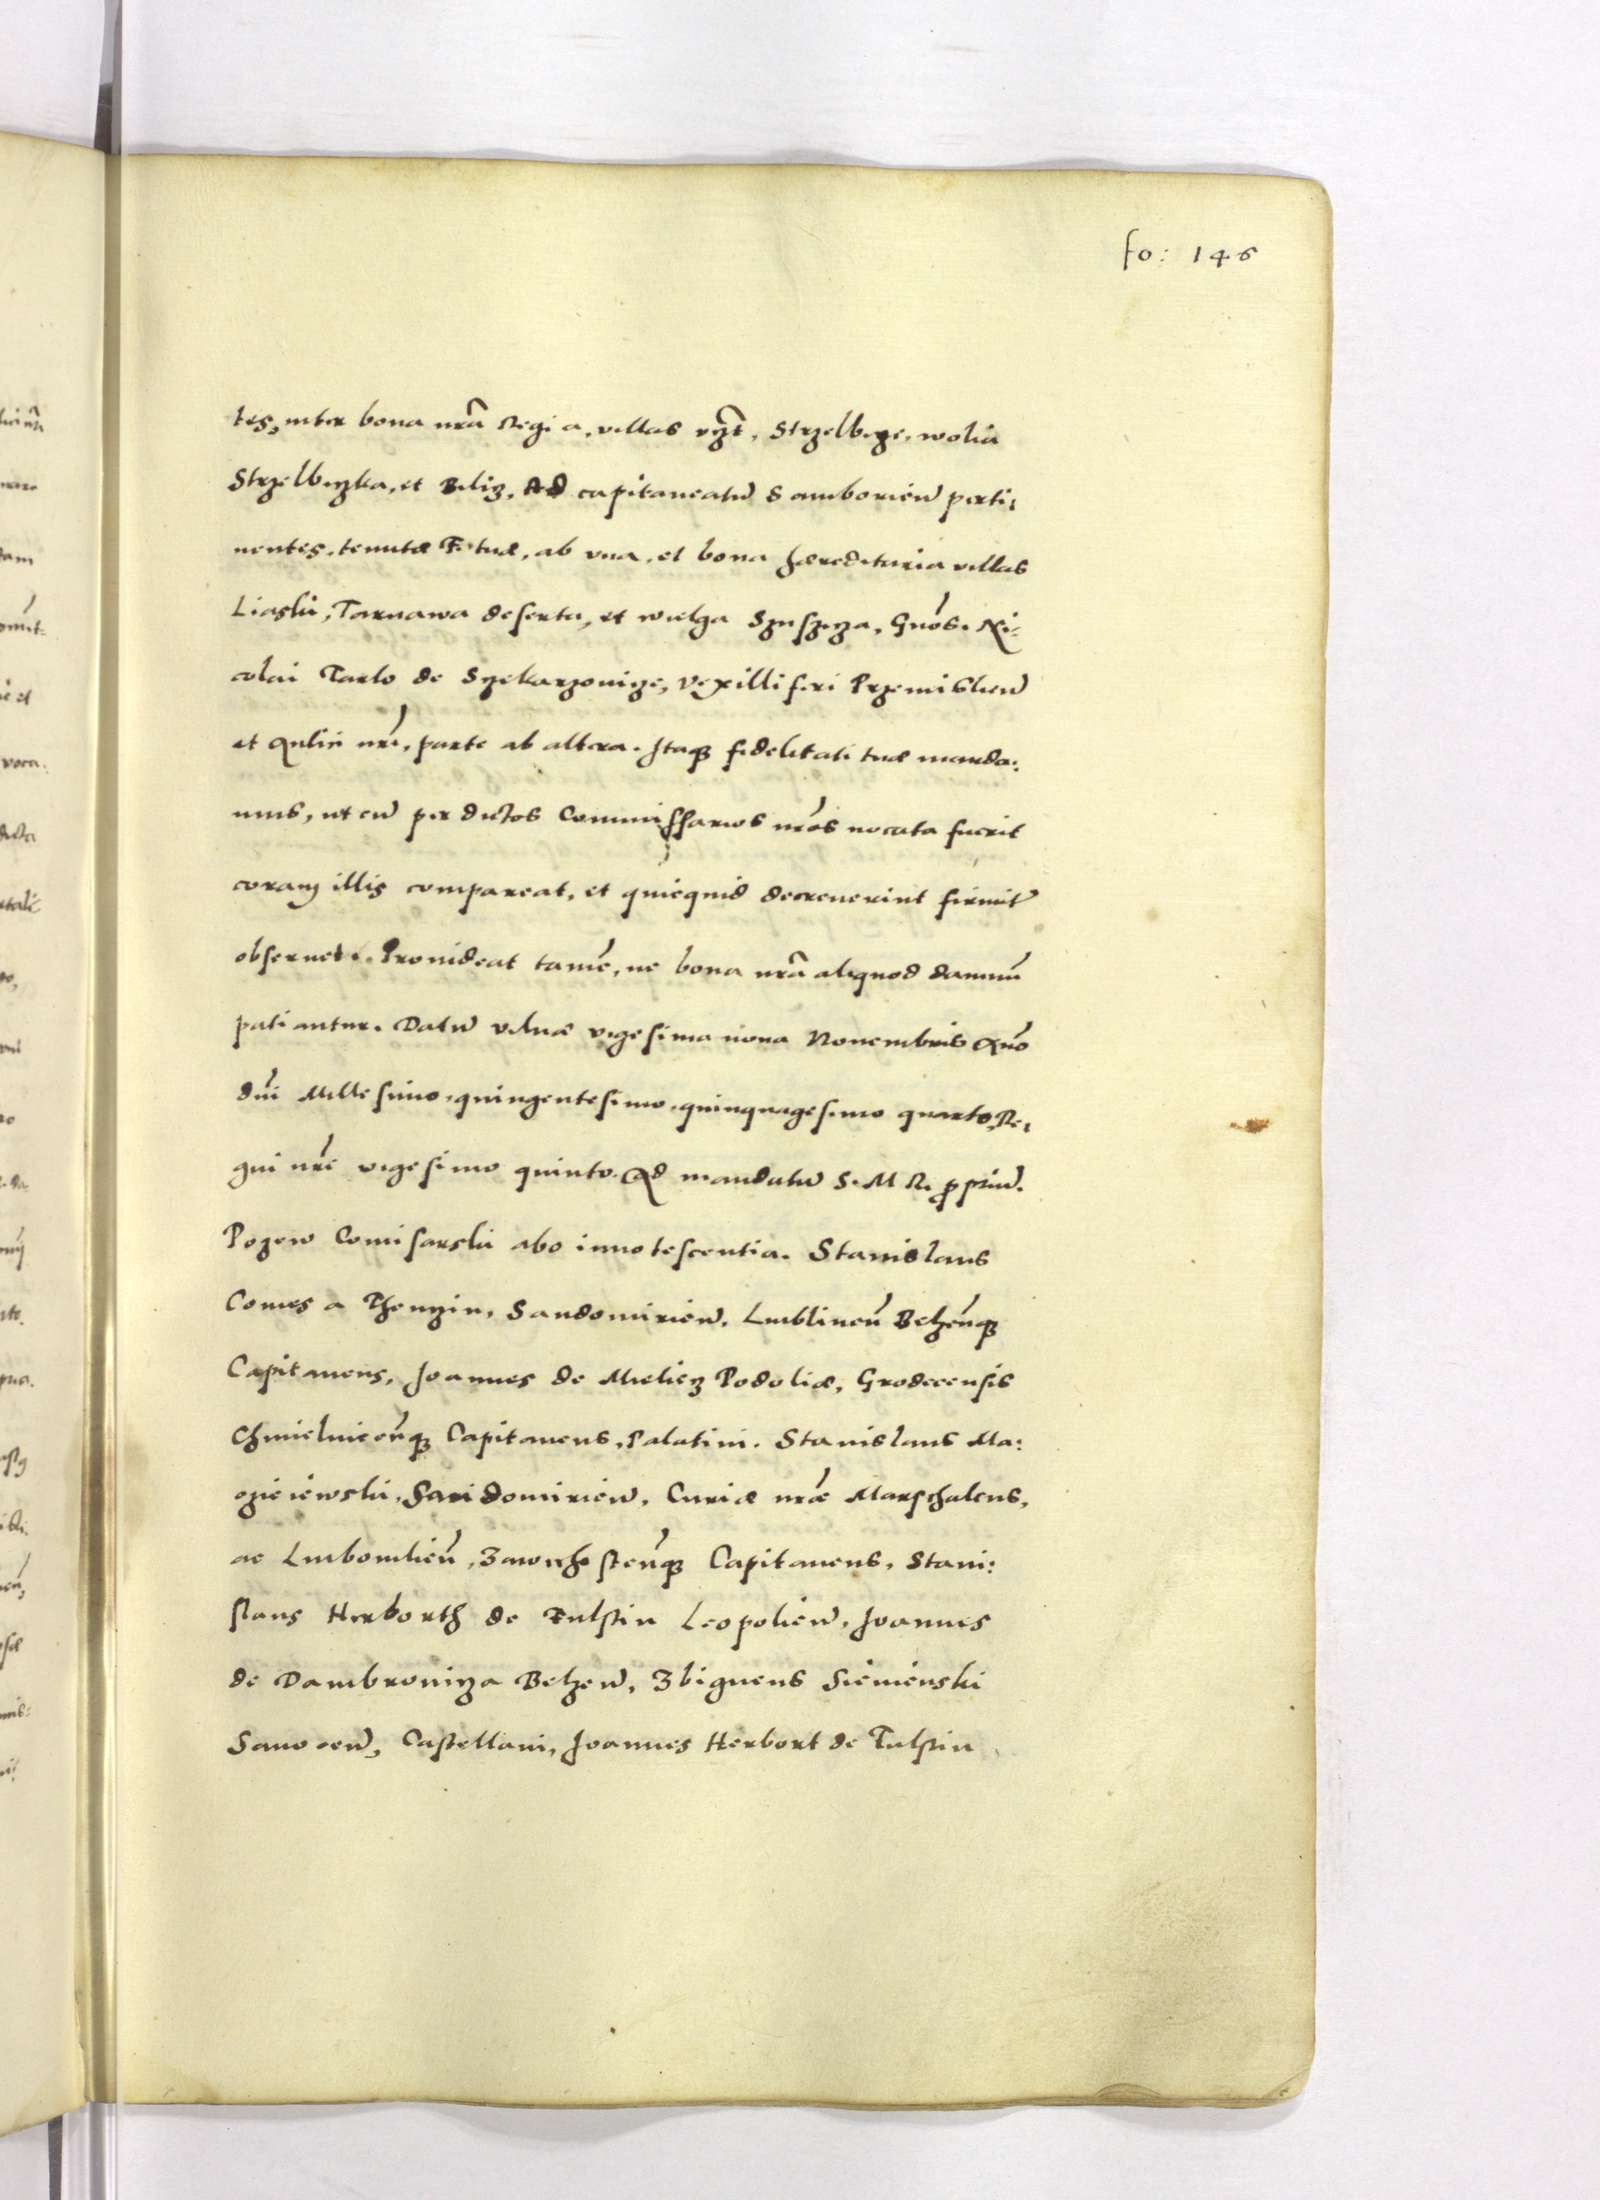 fo: 146
tes, inter bona nrã Regia, villas vzt, Strzelbycze, wolia
Strzelbyczka, et Bilicz, Ad capitaneatũ Samborieñ perti:
nentes, tenutæ F. tuæ, ab vna, et bona hæreditaria villas
Liaski, Tarnawa deserta, et wielga Szuszycza, Gnõs. Ni-
colai Tarlo de Szekarzouicze, Vexilliferi Przemislieñ
et Aulici nrĩ, parte ab altera. Itaq; fidelitati tuæ manda:
mus, ut cũ per dictos Commissarios nrõs uocata fuerit
coram illis compareat, et quicquid decreuerint firmitr
obseruet. Prouideat tamẽ, ne bona nrã aliquod damnũ
patiantur. Datũ Vilnæ vigesima nona Nouembris Añno
dñi Millesimo, quingentesimo, quinquagesimo quarto, Re:
gni nrĩ vigesimo quinto. Ad mandatũ S. M. R. ppriũ.
Pozew Comisarski abo innotescentia. Stanislaus
Comes a Thenczin, Sandomirieñ, Lublineñ Belzeñq;
Capitaneus, Joannes de Mieliecz Podoliæ, Grodecensis
Chmielniceñq; Capitaneus, Palatini. Stanislaus Ma:
czieiewski, Sandomirieñ, Curiæ nræ Marschalcus,
ac Lubomlieñ, Zawichosteñq; Capitaneus, Stani:
slaus Herborth de Fulstin Leopolieñ, Joannes
de Dambrouicza Belzeñ, Zbigneus Siemienski
Sanoceñ, Castellani, Joannes Herbort de Fulstin